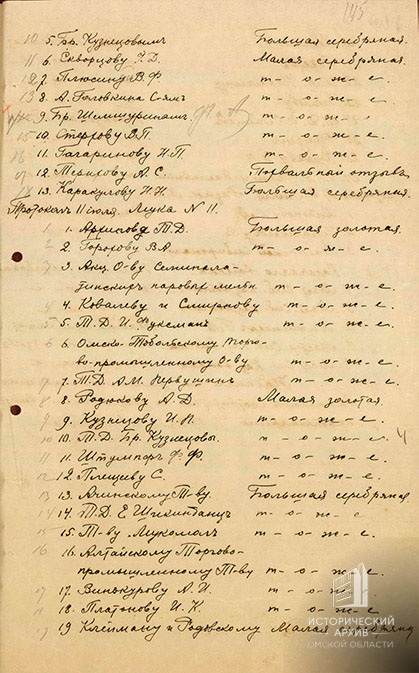 145
10 5. Бр. Кузнецовымъ Большая серебряная.
11 6. Скворцову Д. Малая серебряная.
12 7. Плюсину В. Ф. т-о-ж-е.
13 8. А. Головкина С-ямъ т-о-ж-е.
9. Бр. Шмишуринамъ т-о-ж-е.
15 10. В. П. т-о-ж-е.
16 11. Гагаринову И. П. т-о-ж-е.
17 12. Терихову А. С. Похвальный отзывъ.
18 13. Каракулову Н. Н. Большая серебряная.
Протоколъ 11 июля. Мука № 11.
1 1. Т. Д. Большая золотая.
2. Горохову В. А. т-о-ж-е.
3. Акц. О-ву Семипала-
тинскихъ паровыхъ мельн. т-о-ж-е.
4. Ковалеву и Смирнову т-о-ж-е.
5 5. Т. Д. И. Фуксманъ т-о-ж-е.
6 6. Омско-Тобольскому Торго-
во-промышленному О-ву т-о-ж-е.
7. Т. Д. А. М. Первушинъ т-о-ж-е.
8 8. Родюкову А. Д. Малая золотая.
9 9. Кузнецову И. П. т-о-ж-е.
10 10. Т. Д. Бр. Кузнецовы. т-о-ж-е.
11 11. Штумпфъ Ф. Ф. т-о-ж-е.
12 12 Плещеву С. т-о-ж-е.
13 13. Ачинскому Т-ву. Большая серебряная
14 14. Т. Д. Е. т-о-ж-е
15. Т-ву Мукомолъ т-о-ж-е.
16 16. Алтайскому Торгово-
промышленному Т-ву т-о-ж-е.
17. Винокурову А. И. т-о-ж-е.
18. Платонову И. К. т-о-ж-е.
19 Клейману и Родовскому Малая серебряная
ИСТОРИЧЕСКИЙ
АРХИВ
ОМСКОЙ ОБЛАСТИ